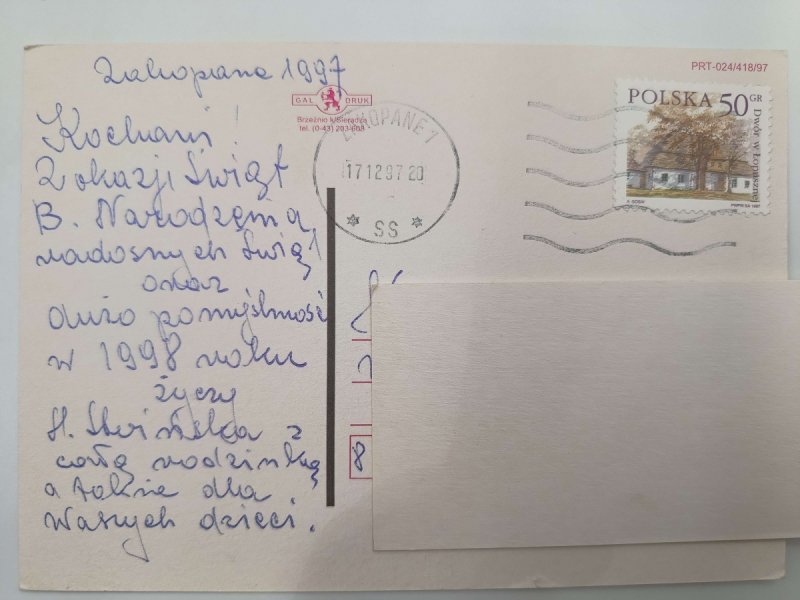 Zakopane 1997
Kochani!
Z okazji Świąt
B. Narodzenia
radosnych Świąt
oraz
dużo pomyślność
w 1998 roku
życzy
H. z
całą rodzinką
a także dla
Waszych dzieci.
GAL DRUK
Brzeźnio k/Sieradza
tel. (0-43) 203-608
ZAKOPANE 1
17.12.97.20
SS
PRT-024/418/97
POLSKA 50 GR
Dwór w Łopusznej
PWPW SA 1997
8